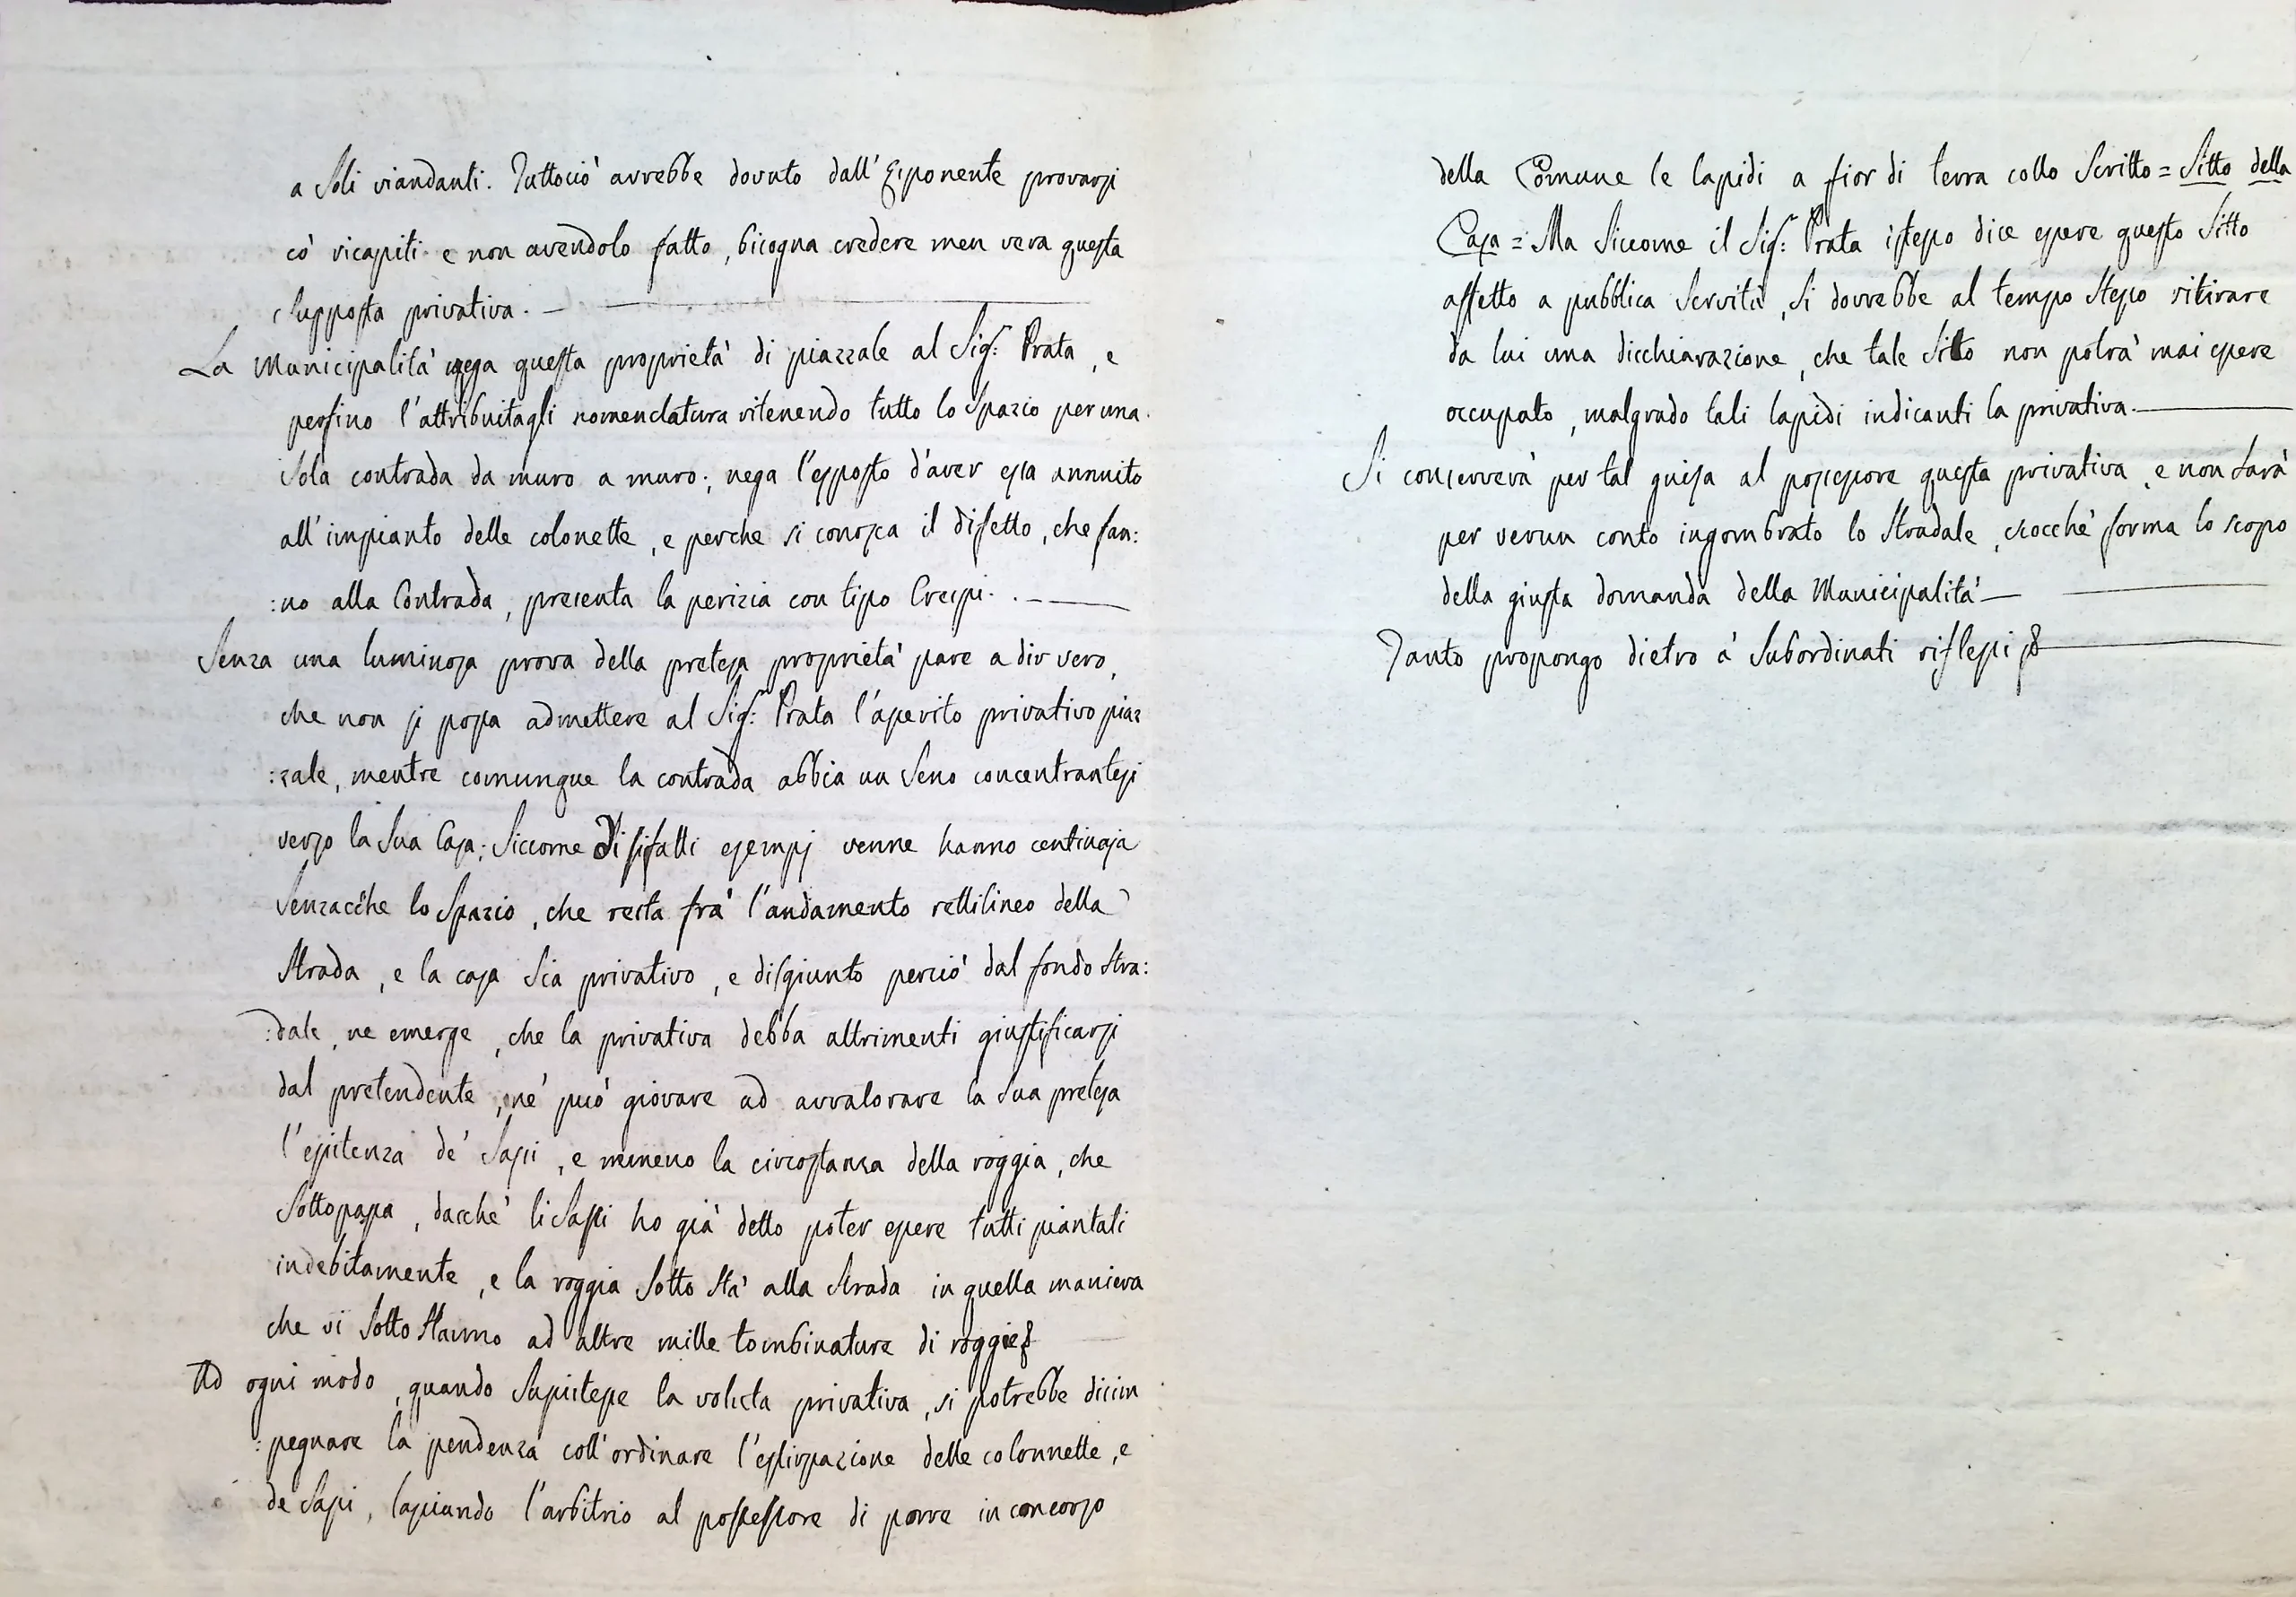 a soli viandanti. Tuttociò avrebbe dovuto dall'Esponente provarsi
cò ricapiti e non avendolo fatto, bisogna credere men vera questa
supposta privativa. —
La Municipalità nega questa proprietà di piazzale al Sig.: Prata, e
persino l'attribuitagli nomenclatura ritenendo tutto lo spazio per una
sola contrada da muro a muro; nega l'esposto d'aver essa annuito
all'impianto delle colonette, e perche si conosca il difetto, che fan:
:no alla Contrada, presenta la perizia con tipo Crespi. . —
Senza una luminosa prova della pretesa proprietà pare a dir vero,
che non si possa admettere al Sig.: Prata l'aperito privativo piaz
:zale, mentre comunque la contrada abbia un seno concentrantesi
verso la sua Casa; siccome di sifatti esempj venne hanno centinaja
senzacche lo spazio, che resta frà l'andamento rettilineo della
strada, e la casa sia privativo, e disgiunto perciò dal fondo stra:
:dale, ne emerge, che la privativa debba altrimenti giustificarsi
dal pretendente, nè può giovare ad avvalorare la sua pretesa
l'esistenza de' sassi, e nemeno la circostanza della roggia, che
sottopassa, dacchè li sassi ho già detto poter essere tutti piantati
indebitamente, e la roggia sotto stà alla strada in quella maniera
che vi sotto stanno ad altre mille tombinature di roggie
Ad ogni modo, quando sussistesse la voluta privativa, si potrebbe disim
:pegnare la pendenza coll'ordinare l'estirpazione delle colonnette, e
de sassi, lasciando l'arbitrio al possessore di porre in concorso
della Comune le lapidi a fior di terra collo scritto = Sitto della
Casa = Ma siccome il Sig.: Prata istesso dice essere questo sitto
affetto a pubblica servitù, si dovrebbe al tempo stesso ritirare
da lui una dicchiarazione, che tale sitto non potrà mai essere
occupato, malgrado tali lapidi indicanti la privativa. —
Si conserverà per tal guisa al possessore questa privativa, e non sarà
per verun conto ingombrato lo stradale, ciocchè forma lo scopo
della giusta domanda della Municipalità —
Tanto propongo dietro à subordinati riflessi